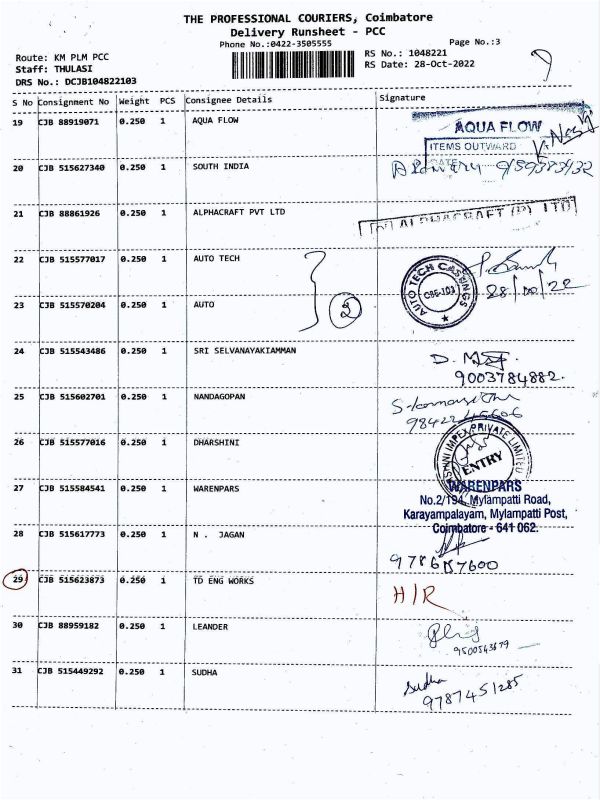 THE PROFESSIONAL COURIERS, Coimbatore
Delivery Runsheet - PCC
Phone No.:0422-3505555
Page No.:3
Route: KM PLM PCC
RS No.: 1048221
Staff: THULASI
RS Date: 28-Oct-2022
DRS No.: DCJB104822103
S No Consignment No Weight PCS Consignee Details Signature
19 CJB 88919071 0.250 1 AQUA FLOW
AQUA FLOW
ITEMS OUTWARD
DATE
20 CJB 515627340 0.250 1 SOUTH INDIA
21 CJB 88861926 0.250 1 ALPHACRAFT PVT LTD
ALPHACRAFT (P) LTD
22 CJB 515577017 0.250 1 AUTO TECH
AUTO TECH CASTINGS
CBE-103
28/10/22
23 CJB 515570204 0.250 1 AUTO
2
24 CJB 515543486 0.250 1 SRI SELVANAYAKIAMMAN
9003784882.
25 CJB 515602701 0.250 1 NANDAGOPAN
26 CJB 515577016 0.250 1 DHARSHINI
IMPEX PRIVATE LIMITED
ENTRY
27 CJB 515584541 0.250 1 WARENPARS
WARENPARS
No.2/194, Mylampatti Road,
Karayampalayam, Mylampatti Post,
Coimbatore - 641 062.
28 CJB 515617773 0.250 1 N . JAGAN
29 CJB 515623873 0.250 1 TD ENG WORKS
H/R
30 CJB 88959182 0.250 1 LEANDER
31 CJB 515449292 0.250 1 SUDHA
Sudha
9787451285